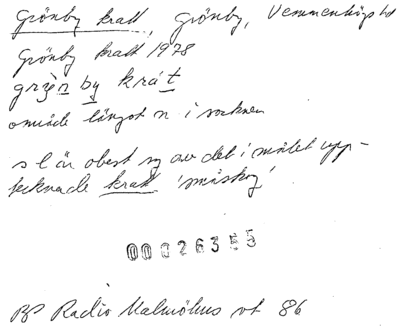 Grönby kratt, Grönby, Vemmenhögs hd
Grönby kratt 1978
by krát
område längst n i socknen
s l är obest sg av det i målet upp-
tecknade kratt 'småskog'
00026355
BP Radio Malmöhus vt 86